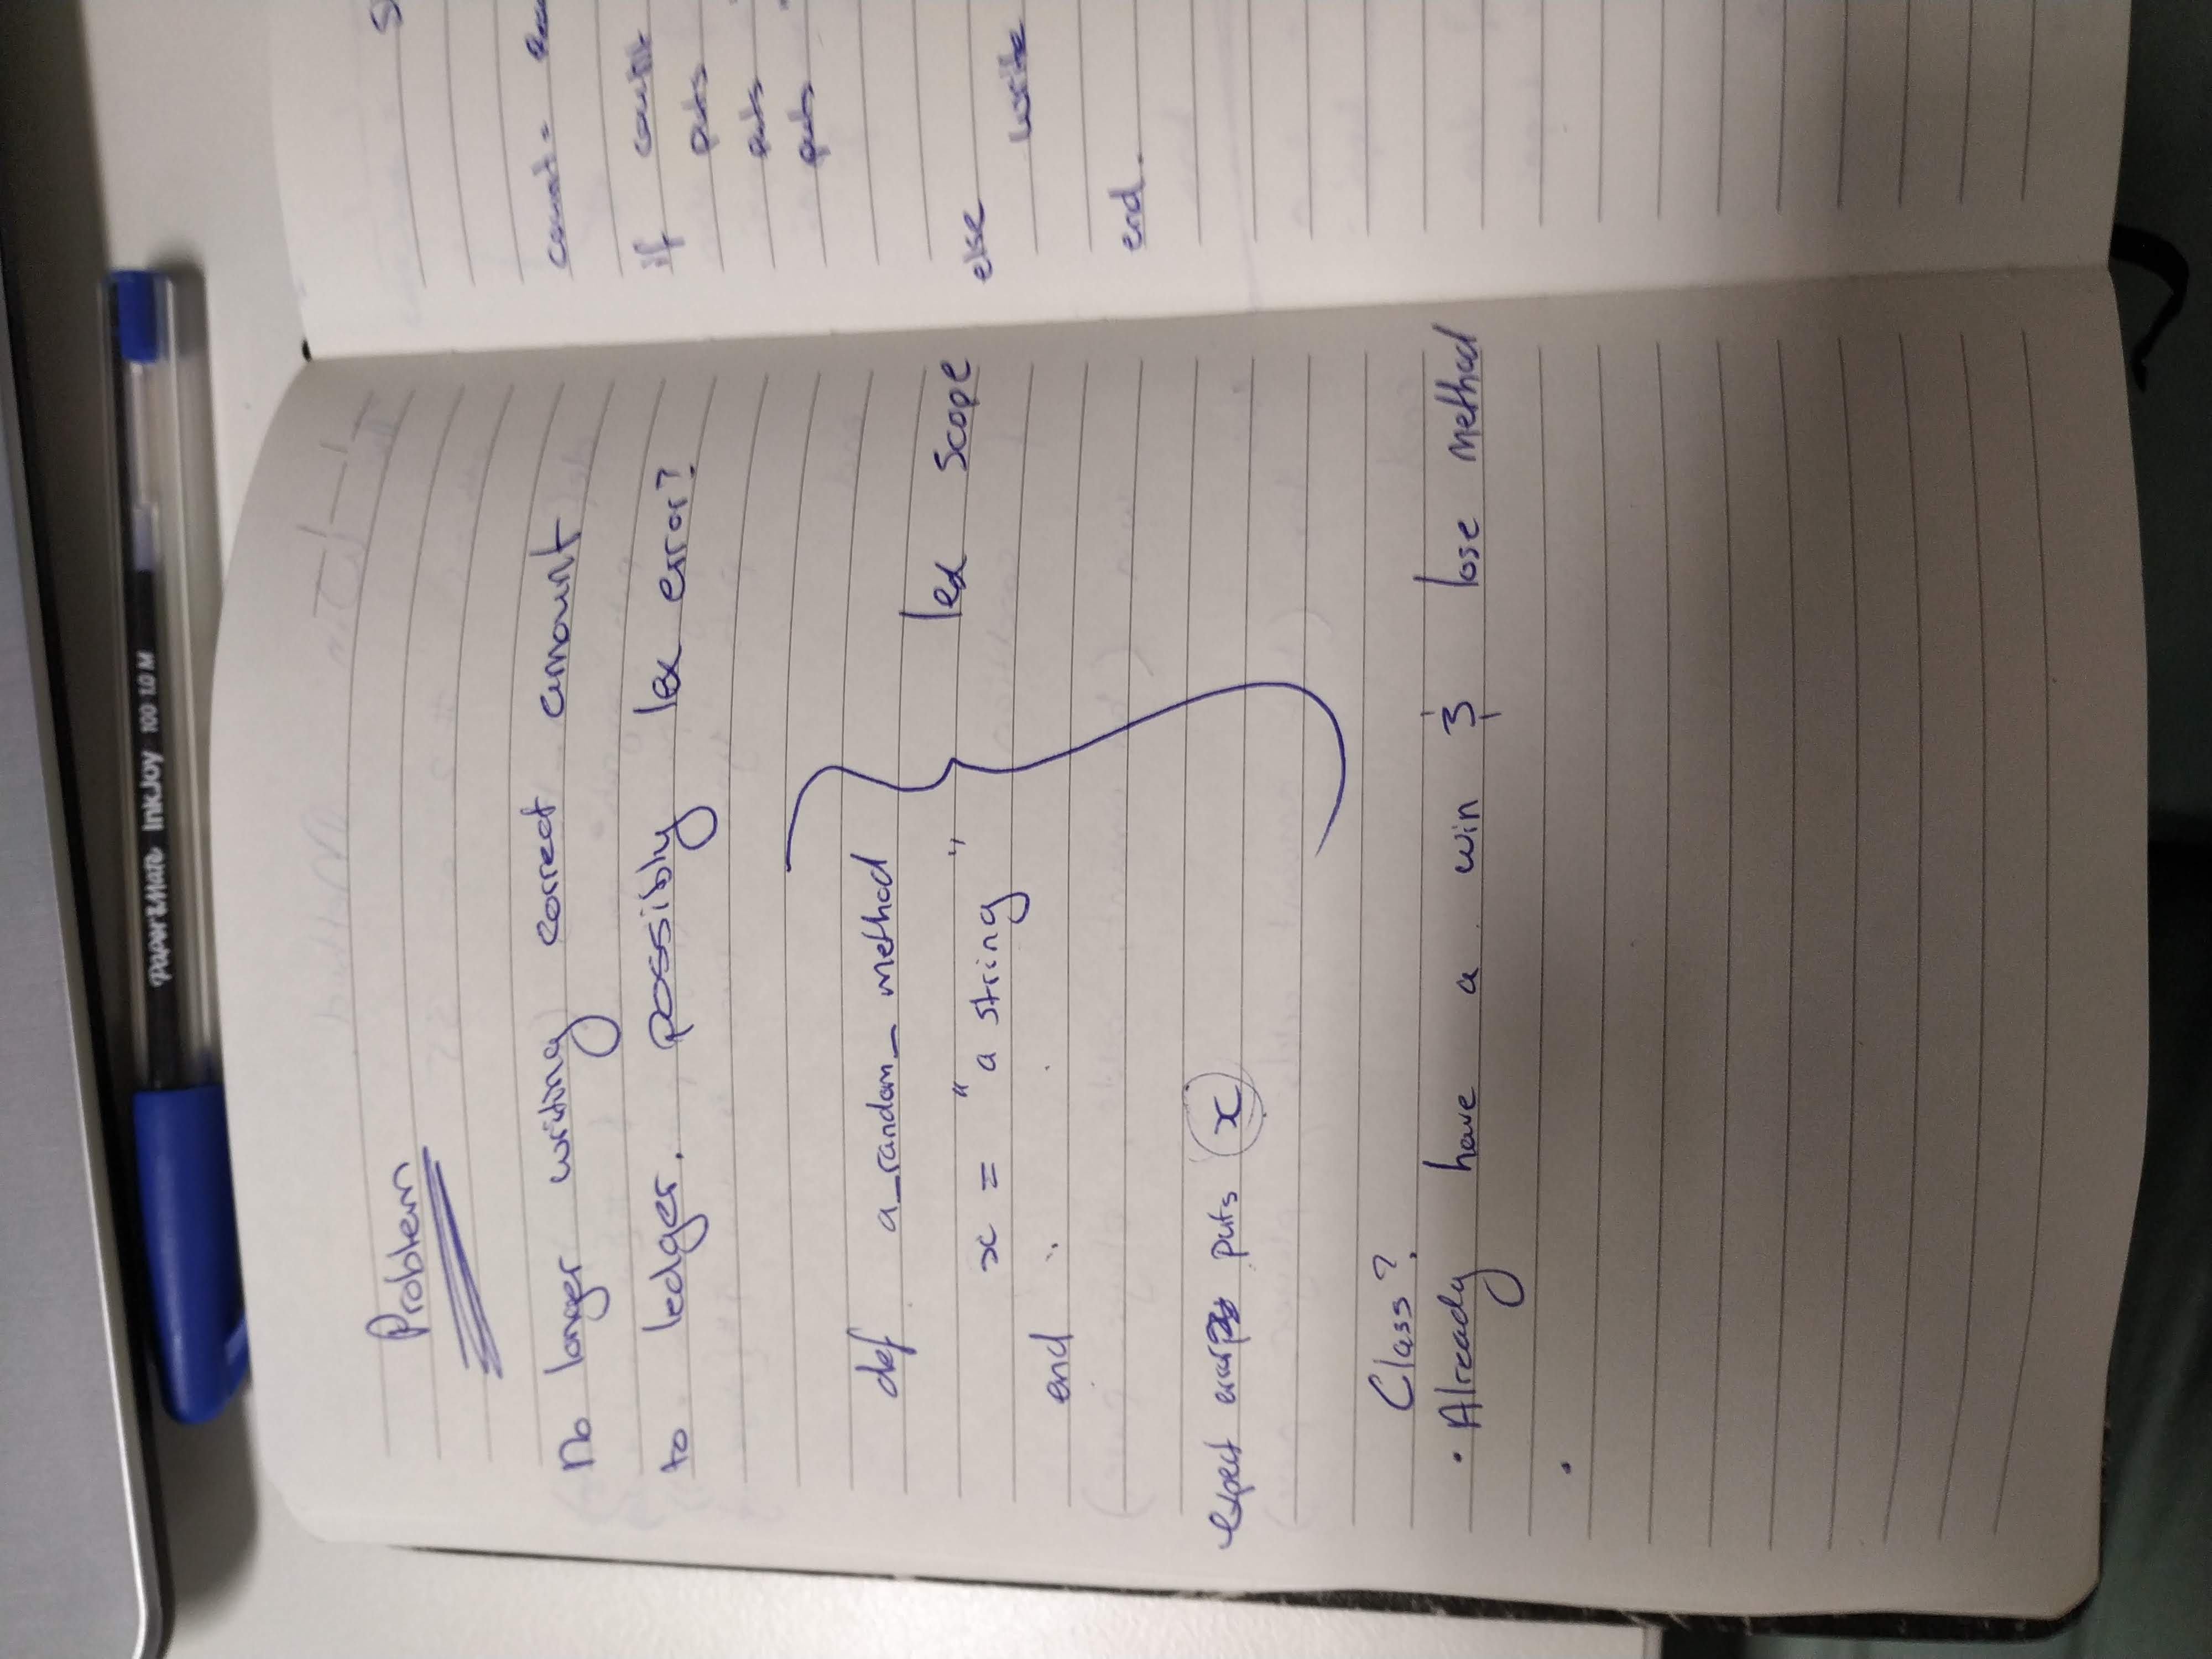 PAPER MATE InkJoy 100 1.0 M
Problem
No longer writing correct amount
to ledger. possibly lex error?
def a_random_method
x = "a string"
end
lex scope
expect error puts x
Class?
• Already have a win & lose method
•
count =
if count
puts
puts
puts
else
write
end.